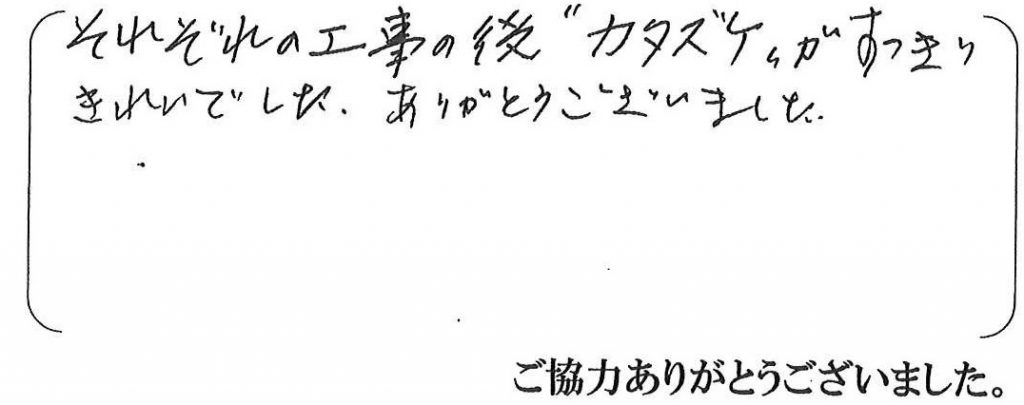 それぞれの工事の後〝カタズケ〟がすっきり
きれいでした. ありがとうございました.
ご協力ありがとうございました。